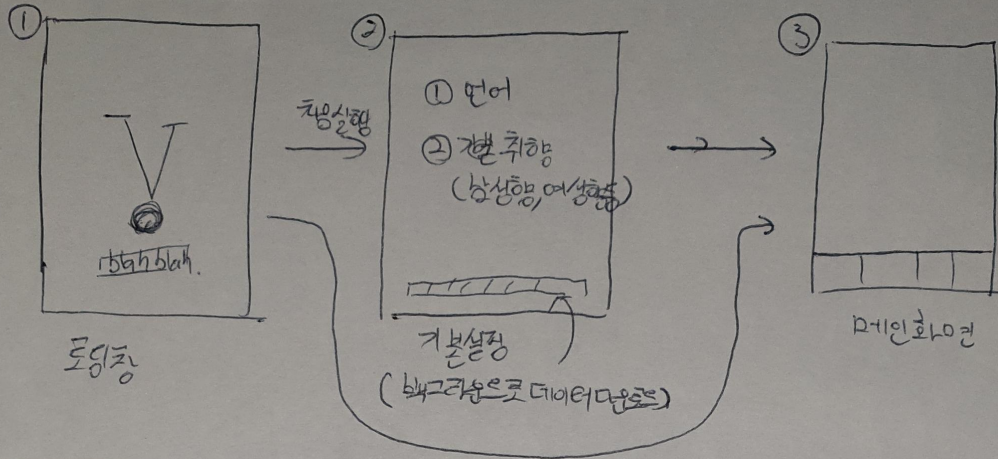 ①
blah blah.
로딩창
처음실행
②
① 언어
② 개별 취향
(남성향, 여성향등)
기본설정
(백그라운드로 데이터다운로드)
③
메인화면